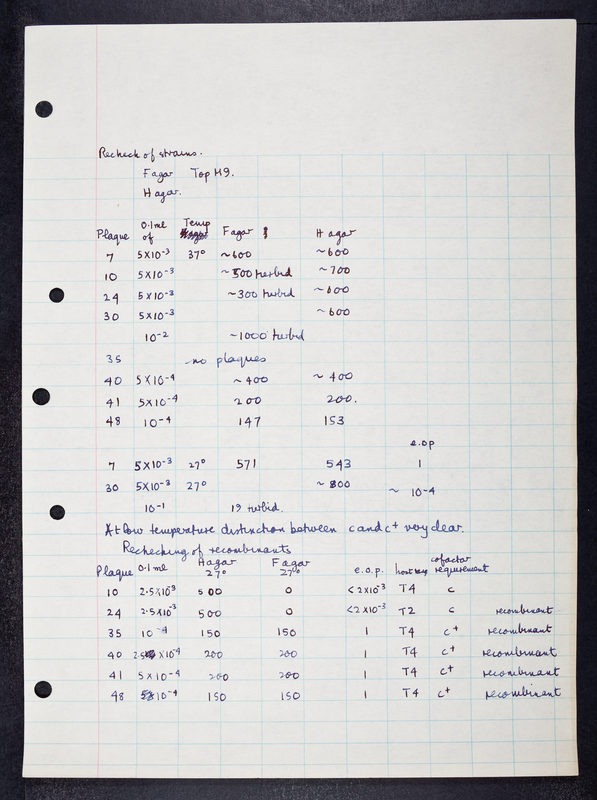 Recheck of strains.
Fagar Top H9.
Hagar.
Plaque 0.1ml of Temp Fagar Hagar
7 5X10⁻³ 37° ~600 ~600
10 5X10⁻³ ~500 turbid ~700
24 5X10⁻³ ~300 turbid ~600
30 5X10⁻³ ~600
10⁻² ~1000 turbid
35 no plaques
40 5X10⁻⁴ ~400 ~400
41 5X10⁻⁴ 200 200.
48 10⁻⁴ 147 153
e.o.p
7 5X10⁻³ 27° 571 543 1
30 5X10⁻³ 27° ~800 ~ 10⁻⁴
10⁻¹ 19 turbid.
At low temperature distinction between c and c⁺ very clear.
Rechecking of recombinants
Plaque 0.1ml Hagar 27° Fagar 27° e.o.p. host range cofactor requirement
10 2.5X10⁻³ 500 0 <2X10⁻³ T4 c
24 2.5X10⁻³ 500 0 <2X10⁻³ T2 c recombinant
35 10⁻⁴ 150 150 1 T4 c⁺ recombinant
40 X10⁻⁴ 200 200 1 T4 c⁺ recombinant
41 5X10⁻⁴ 200 200 1 T4 c⁺ recombinant
48 10⁻⁴ 150 150 1 T4 c⁺ recombinant